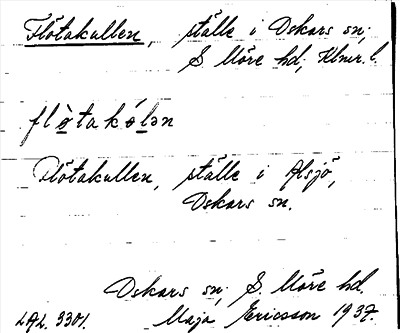 Flötakullen, ställe i Oskars sn;
S. Möre hd; Klmr. l.
flö̀takúlən
Flötakullen, ställe i Alsjö,
Oskars sn.
Oskars sn; S. Möre hd.
LAL. 3301. Maja Ericsson 1937.